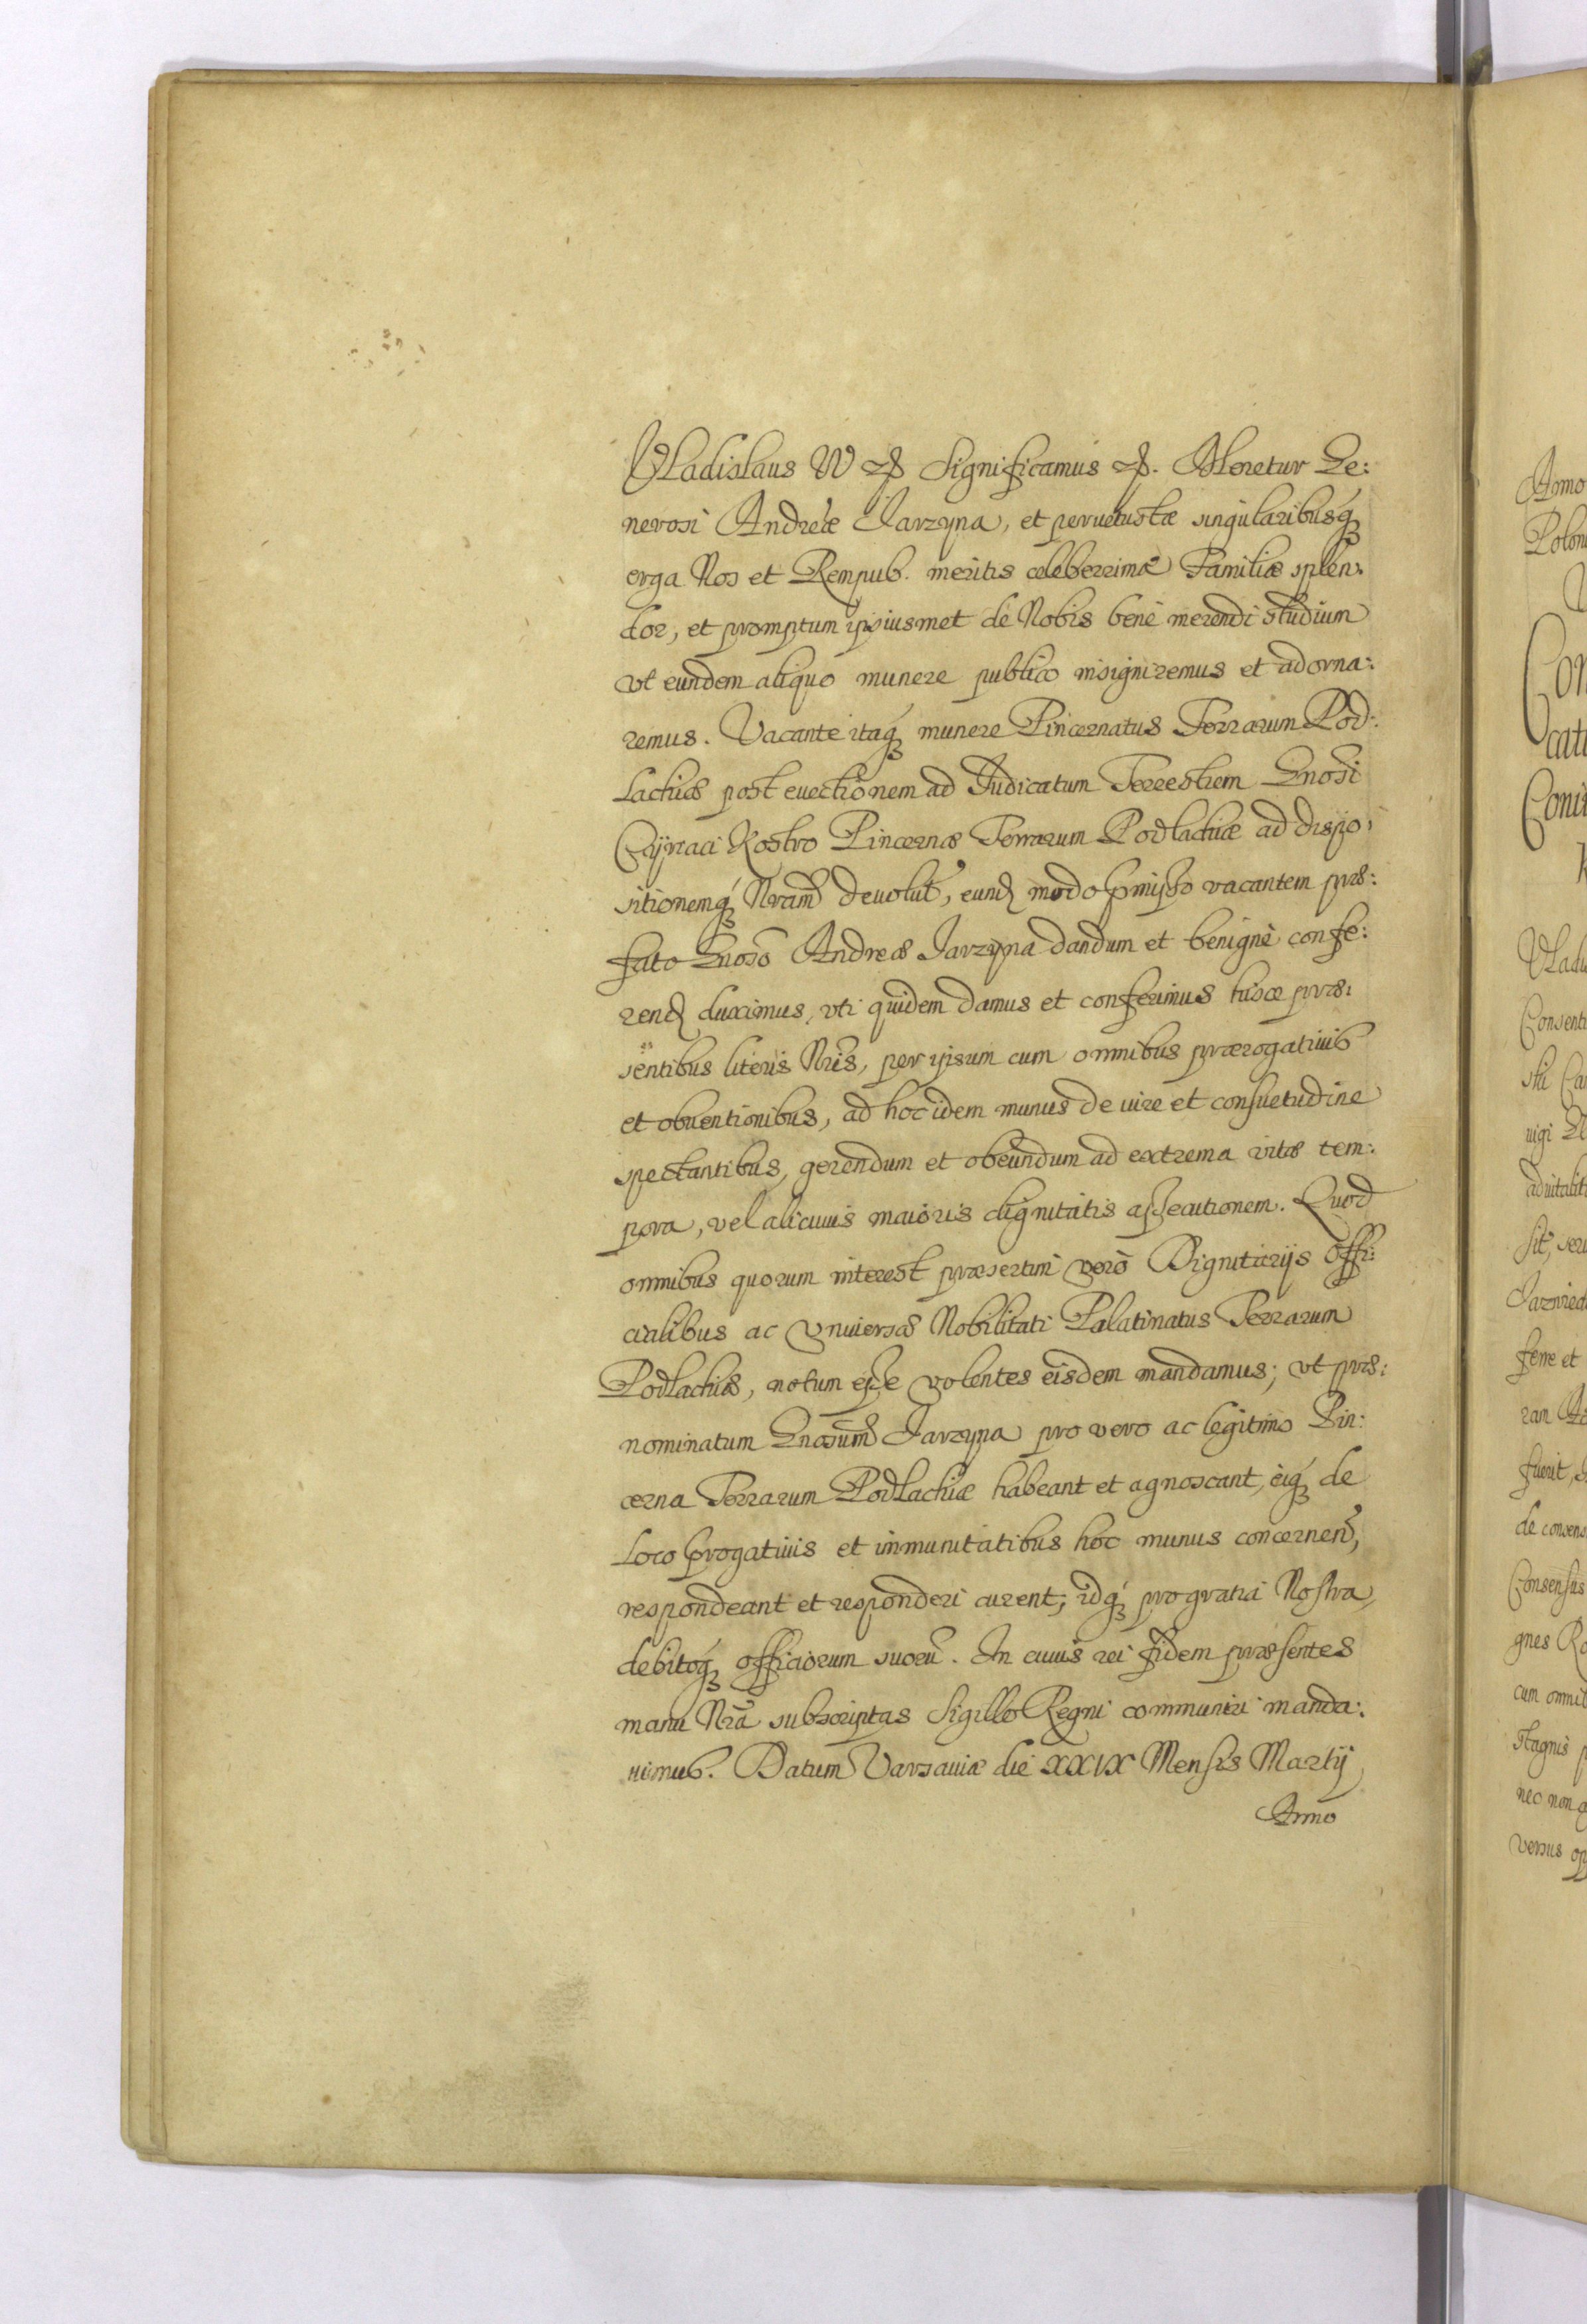 Vladislaus IV etc Significamus etc. Meretur Ge:
nerosi Andreæ Jarzyna, et pervetustæ singularibusq́
erga Nos et Rempub. meritis celeberrimæ Familiæ splen:
dor, et promptum ipsiusmet de Nobis benè merendi studium
vt eundem aliquo munere publico insigniremus et adorna:
remus. Vacante itaq́ munere Pincernatus Terrarum Pod:
lachiæ post euectionem ad Judicatum Terrestrem Gnosi
Cypriaci Kostro Pincernæ Terrarum Podlachiæ ad dispo:
sitionemq́ Nram deuolut, eund modo pmisso vacantem præ:
fato Gnoso Andreæ Jarzyna dandum et benignè confe:
rend duximus, vti quidem damus et conferimus hisce præ:
sentibus literis Nris, per ipsum cum omnibus prærogatiuis
et obuentionibus, ad hoc idem munus de iure et consuetudine
spectantibus, gerendum et obeundum ad extrema vitæ tem:
pora, vel alicuius maioris dignitatis assecutionem. Quod
omnibus quorum interest præsertim verò Dignitarijs Offi:
cialibus ac Vniuersæ Nobilitati Palatinatus Terrarum
Podlachiæ, notum esse volentes eisdem mandamus; vt præ:
nominatum Gnosum Jarzyna pro vero ac legitimo Pin:
cerna Terrarum Podlachiæ habeant et agnoscant, eiq́ de
loco progatiuis et immunitatibus hoc munus concernen,
respondeant et responderi curent; idq́ pro gratia Nostra,
debitoq́ officiorum suorū. In cuius rei fidem præsentes
manu Nrā subscriptas Sigillo Regni communiri manda:
uimus. Datum Varsauiæ die XXIX Mensis Martij
Anno